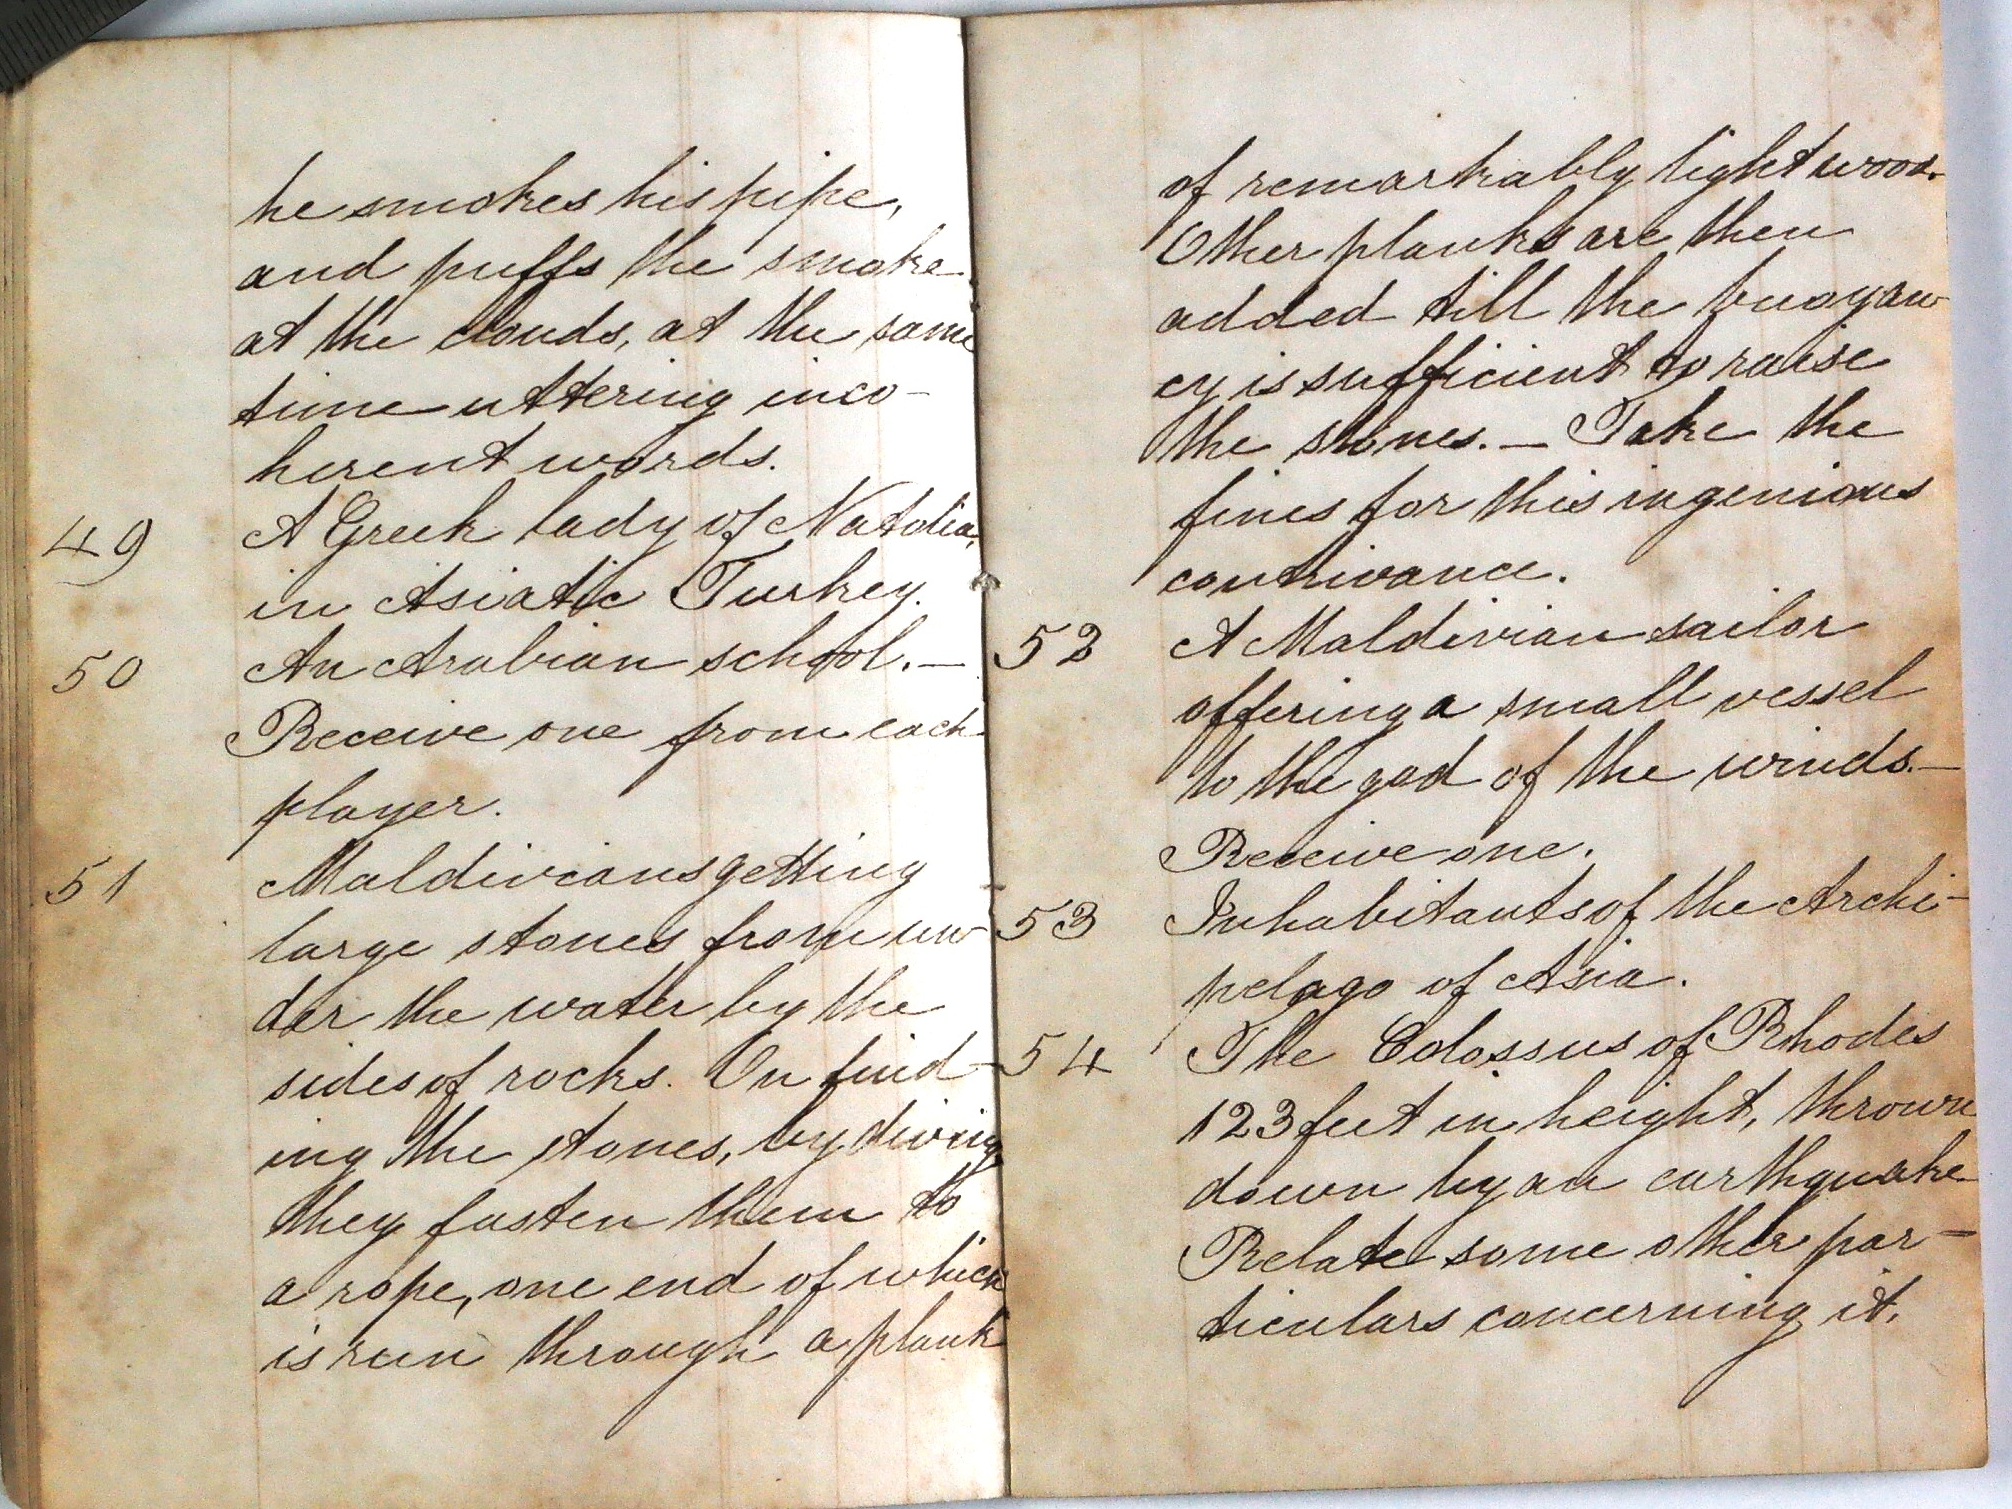 he smokes his pipe,
and puffs the smoke
at the clouds, at the same
time uttering inco-
herent words.
49 A Greek lady of Natolia,
in Asiatic Turkey.
50 An Arabian school. —
Receive one from each
player.
51 Maldivians getting
large stones from un-
der the water by the
sides of rocks. On find-
ing the stones, by diving,
they fasten them to
a rope, one end of which
is run through a plank
of remarkably light wood.
Other planks are then
added till the buoyan-
cy is sufficient to raise
the stones. — Take the
fines for this ingenious
contrivance.
52 A Maldivian sailor
offering a small vessel
to the god of the winds. —
Receive one.
53 Inhabitants of the Archi-
pelago of Asia.
54 The Colossus of Rhodes
123 feet in height, thrown
down by an earthquake
Relate some other par-
ticulars concerning it.